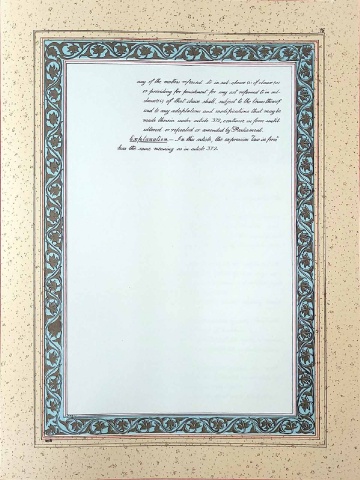 any of the matters referred to in sub-clause (i) of clause (a)
or providing for punishment for any act referred to in sub-
clause (ii) of that clause shall, subject to the terms thereof
and to any adaptations and modifications that may be
made therein under article 372, continue in force until
altered or repealed or amended by Parliament.
Explanation.— In this article, the expression "law in force"
has the same meaning as in article 372.